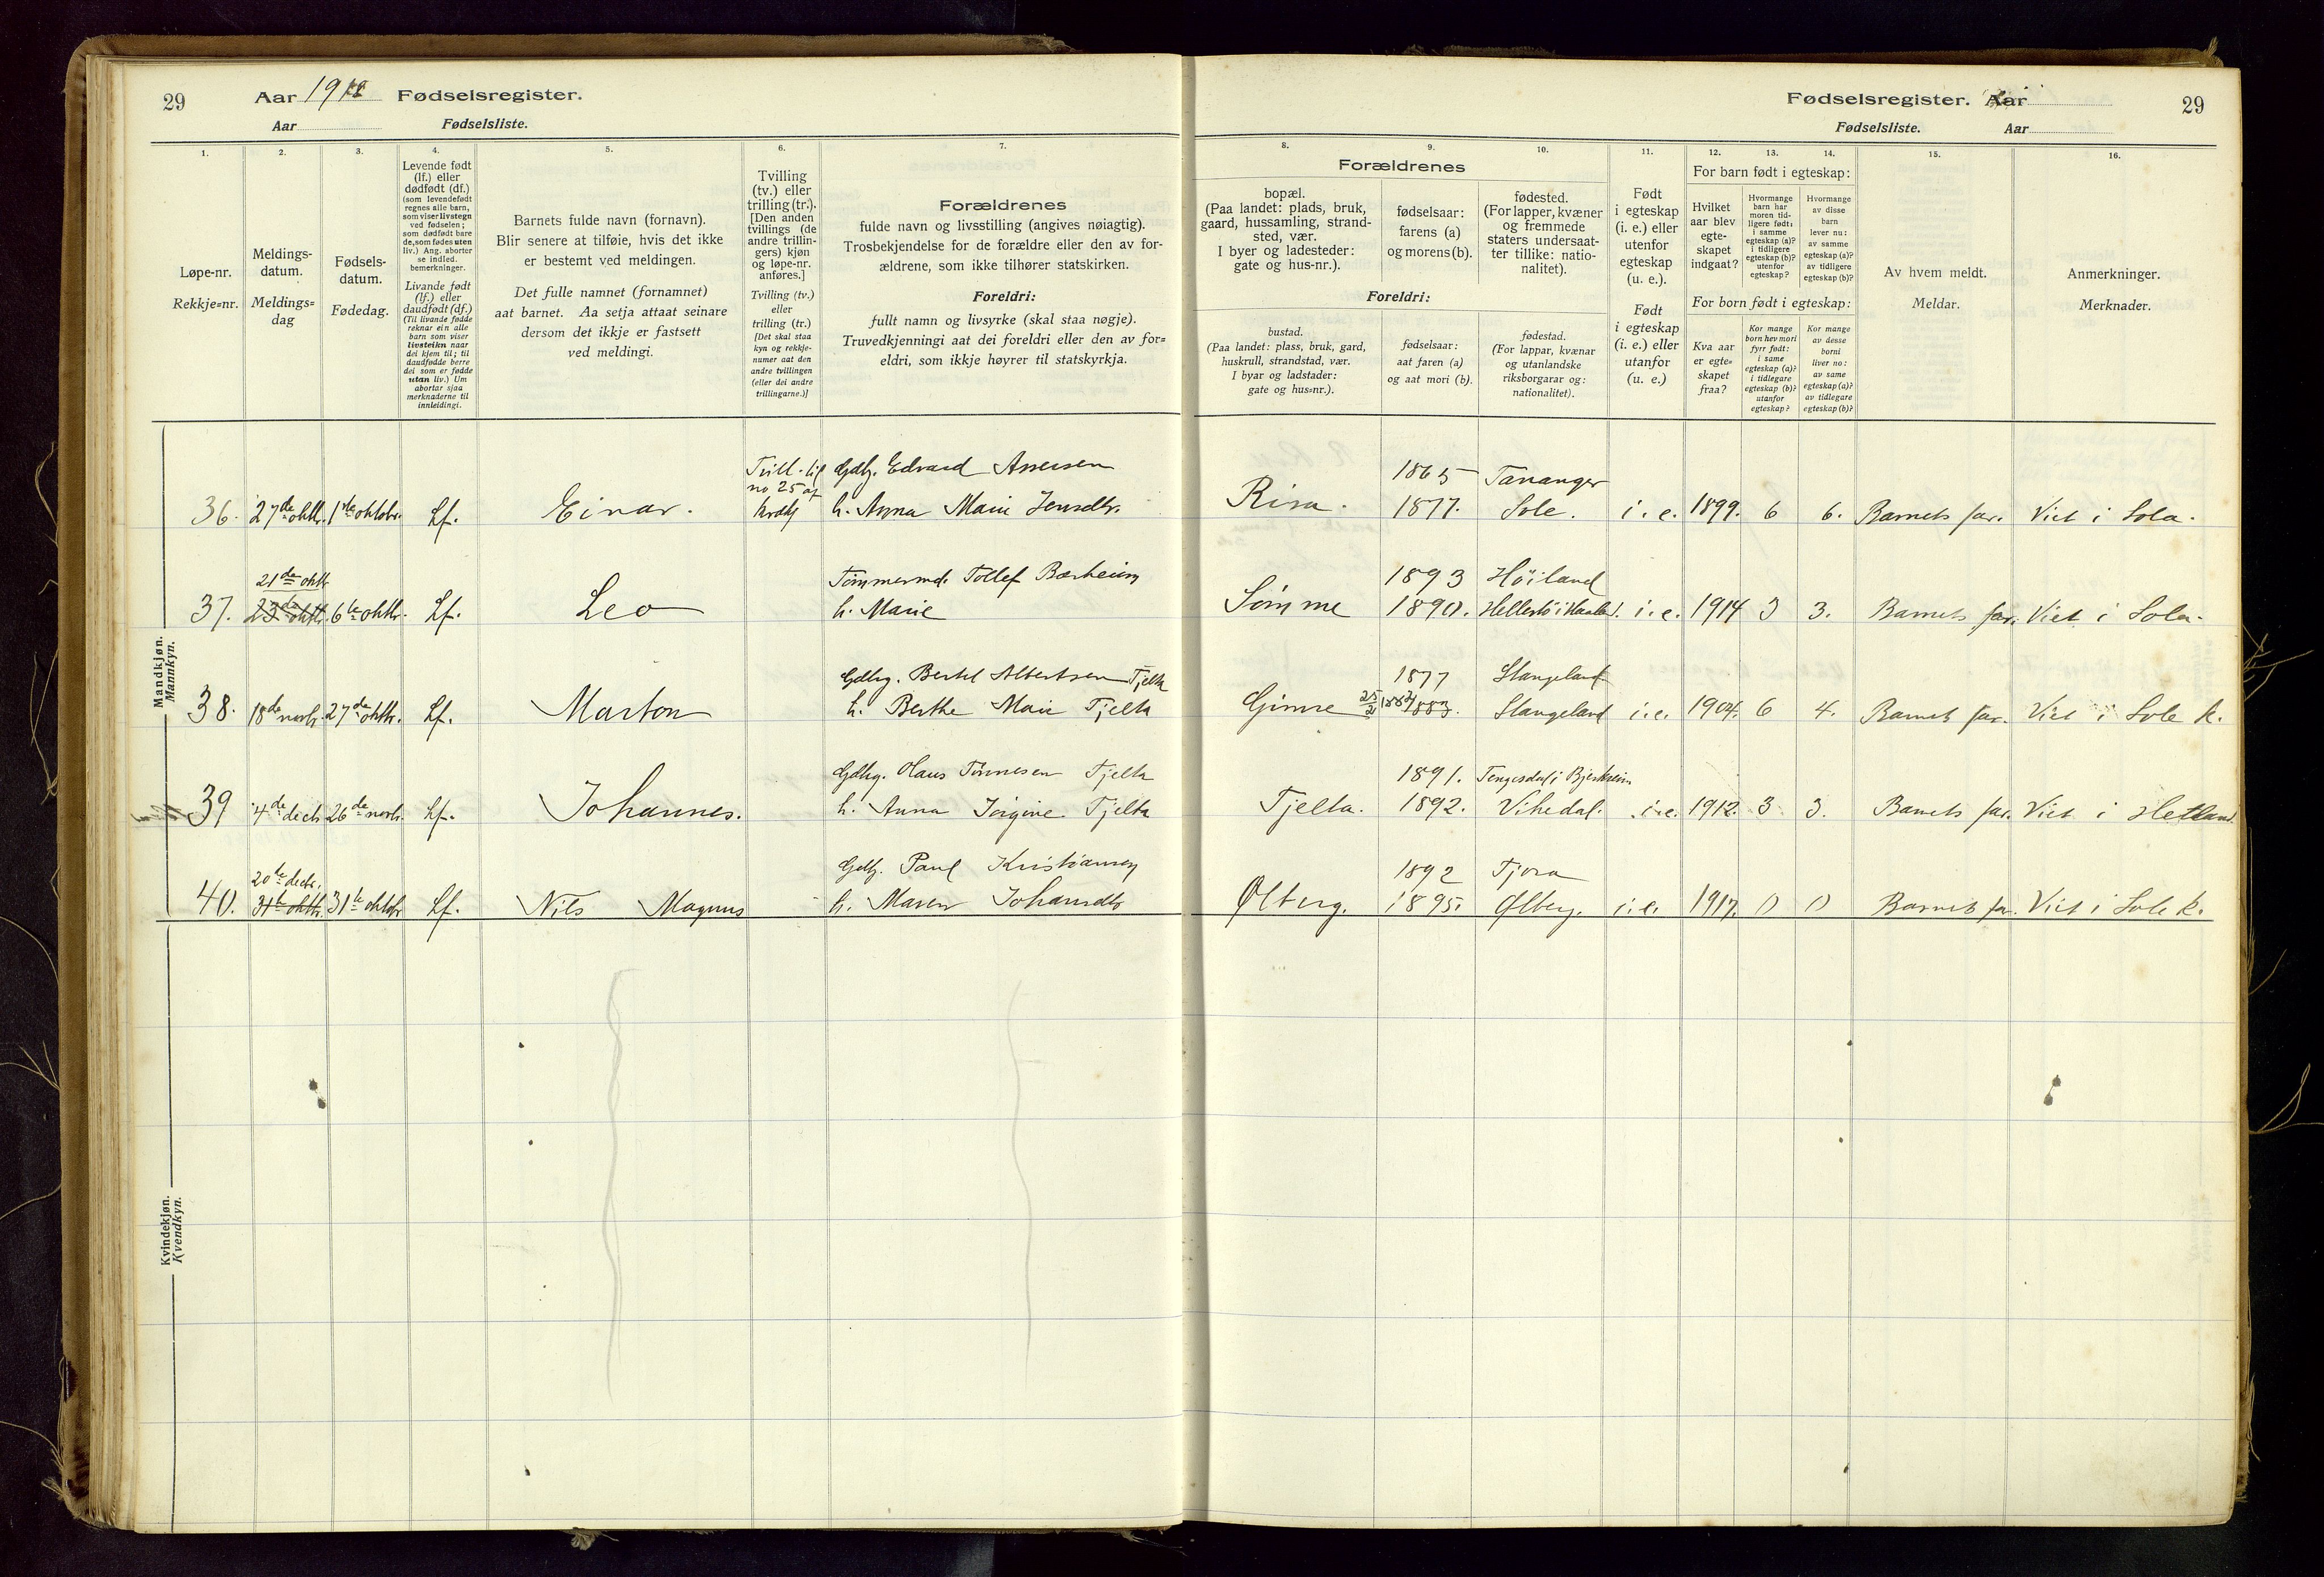 29
Aar 1918 Fødselsregister.
Aar Fødselsliste.
1.
Løpe-nr.
Rekkje=nr.
2.
Meldings-
datum.
Meldings=
dag
3.
Fødsels-
datum.
Fødedag.
4.
Levende født
(lf.) eller
dødfødt (df.)
(som levendefødt
regnes alle barn,
som viser livstegn
ved fødselen;
som dødfødt bare
de, som fødes uten
liv.) Ang. aborter
se indled.
bemerkninger.
Livande fødd
(lf.) eller
daudfødt (df.)
(Til livande fødde
reknar ein alle
barn som viser
livsteikn naar
dei kjem til; til
daudfødde berre
dei som er fødde
utan liv.) Um
abortar sjaa
merknaderne til
innleidingi.
5.
Barnets fulde navn (fornavn).
Blir senere at tilføie, hvis det ikke
er bestemt ved meldingen.
Det fulle namnet (fornamnet)
aat barnet. Aa setja attaat seinare
dersom det ikkje er fastsett
ved meldingi.
6.
Tvilling
(tv.) eller
trilling (tr.).
[Den anden
tvillings (de
andre trillin-
gers) kjøn
og løpe-nr.
anføres.]
Tvilling (tv.)
eller
trilling (tr.)
[Det skal staa
kyn og rekkje-
numer aat den
andre tvillingen
(eller dei andre
trillingarne.)]
7.
Forældrenes
fulde navn og livsstilling (angives nøiagtig).
Trosbekjendelse for de forældre eller den av for-
ældrene, som ikke tilhører statskirken.
Foreldri:
fullt namn og livsyrke (skal staa nøgje).
Truvedkjenningi aat dei foreldri eller den av for=
eldri, som ikkje høyrer til statskyrkja.
Mandkjøn.
Mannkyn.
36. 27de oktbr. 1ste oktobr. Lf. Einar. no 25 af Gdbr. Edvard Assersen
h. Anna Marie Jensdtr.
21de oktbr
37. 23de oktbr. 6te oktbr. Lf. Leo Tømmermd. Tollef Bærheim
h. Marie
38. 18de novbr. 27de oktbr. Lf. Marton Gdbrg. Bertel Albertsen Tjelta
h. Berthe Marie Tjelta
39 4de decbr 26de novbr. Lf. Johannes. Gdbrg. Olaus Tønnesen Tjelta
h. Anna Jørgine Tjelta
20de decbr.
40. 31te oktbr. 31te oktobr Lf. Nils Magnus Gdbr. Paul Kristiansen
h. Maren Johansdtr
Kvindekjøn.
Kvendkyn.
Fødselsregister. Aar
29
Fødselsliste. Aar
8.
Forældrenes
bopæl.
(Paa landet: plads, bruk,
gaard, hussamling, strand-
sted, vær.
I byer og ladesteder:
gate og hus-nr.).
Foreldri:
bustad.
(Paa landet: plass, bruk, gard,
huskrull, strandstad, vær.
I byar og ladstader:
gate og hus=nr.).
9.
fødselsaar:
farens (a)
og morens (b).
fødselsaar:
aat faren (a)
og aat mori (b).
10.
fødested.
(For lapper, kvæner
og fremmede
staters undersaat-
ter tillike: natio-
nalitet).
fødestad.
(For lappar, kvænar
og utanlandske
riksborgarar og:
nationalitet).
11.
Født
i egteskap
(i. e.) eller
utenfor
egteskap
(u. e.).
Født
i egteskap
(i. e.) eller
utanfor
(u. e.)
For barn født i egteskap:
12.
Hvilket
aar blev
egte-
skapet
indgaat?
13.
Hvormange
barn har
moren tid-
ligere født:
i samme
egteskap (a)?
i tidligere
egteskap (b)?
utenfor
egteskap?
14.
Hvormange
av disse
barn
lever nu:
av samme
egteskap (a)?
av tidligere
egteskap (b)?
For born født i egteskap:
Kva aar
er egte=
skapet
fraa?
Kor mange
born hev mori
fyrr født:
i same
egteskap (a)?
i tidlegare
egteskap (b)?
utanfor
egteskap?
Kor mange
av desse
borni
liver no:
av same
egteskap (a)?
av tidlegare
egteskap (b)?
15.
Av hvem meldt.
Meldar.
16.
Anmerkninger.
Merknader.
1865 Tananger
Risa. 1877. Sole. i. e. 1899. 6 6. Barnets far. Viet i Sola.
1893 Høiland
Sømme 1890. i. e. 1914 3 3. Barnets far. Viet i Sola.
1877 Stangeland
Gimre 1883. Stangeland i. e. 1904. 6 4. Barnets far. Viet i Sole k.
1891. Tengesdal i Bjerkreim
Tjelta. 1892. Vikedal. i. e. 1912. 3 3. Barnets far. Viet i Hetland.
1892 Tjora
Ølberg. 1895. Ølberg. i. e. 1917. 0 0 Barnets far. Viet i Sole k.